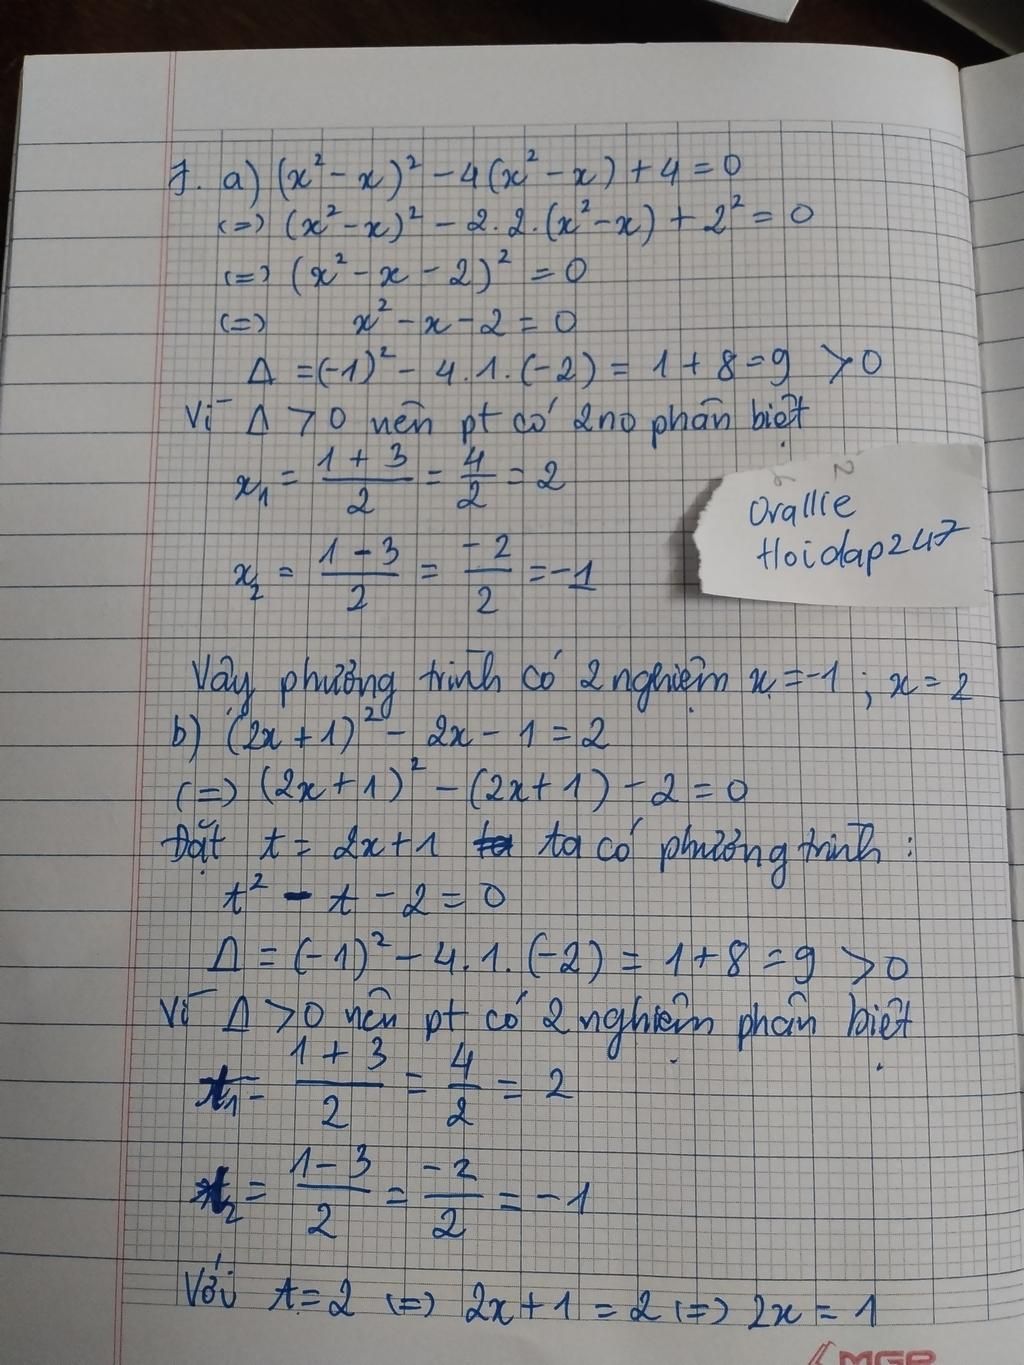 7. a) (x² - x)² - 4(x² - x) + 4 = 0
(=) (x² - x)² - 2.2.(x² - x) + 2² = 0
(=) (x² - x - 2)² = 0
(=) x² - x - 2 = 0
Δ = (-1)² - 4.1.(-2) = 1 + 8 = 9 > 0
Vì Δ > 0 nên pt có 2 no phân biệt
x₁ = (1 + 3)/2 = 4/2 = 2
x₂ = (1 - 3)/2 = -2/2 = -1
Orallie
Hoidap247
Vậy phương trình có 2 nghiệm x = -1 ; x = 2
b) (2x + 1)² - 2x - 1 = 2
(=) (2x + 1)² - (2x + 1) - 2 = 0
Đặt t = 2x + 1 ta có phương trình :
t² - t - 2 = 0
Δ = (-1)² - 4.1.(-2) = 1 + 8 = 9 > 0
Vì Δ > 0 nên pt có 2 nghiệm phân biệt
t₁ = (1 + 3)/2 = 4/2 = 2
t₂ = (1 - 3)/2 = -2/2 = -1
Với t = 2 (=) 2x + 1 = 2 (=) 2x = 1